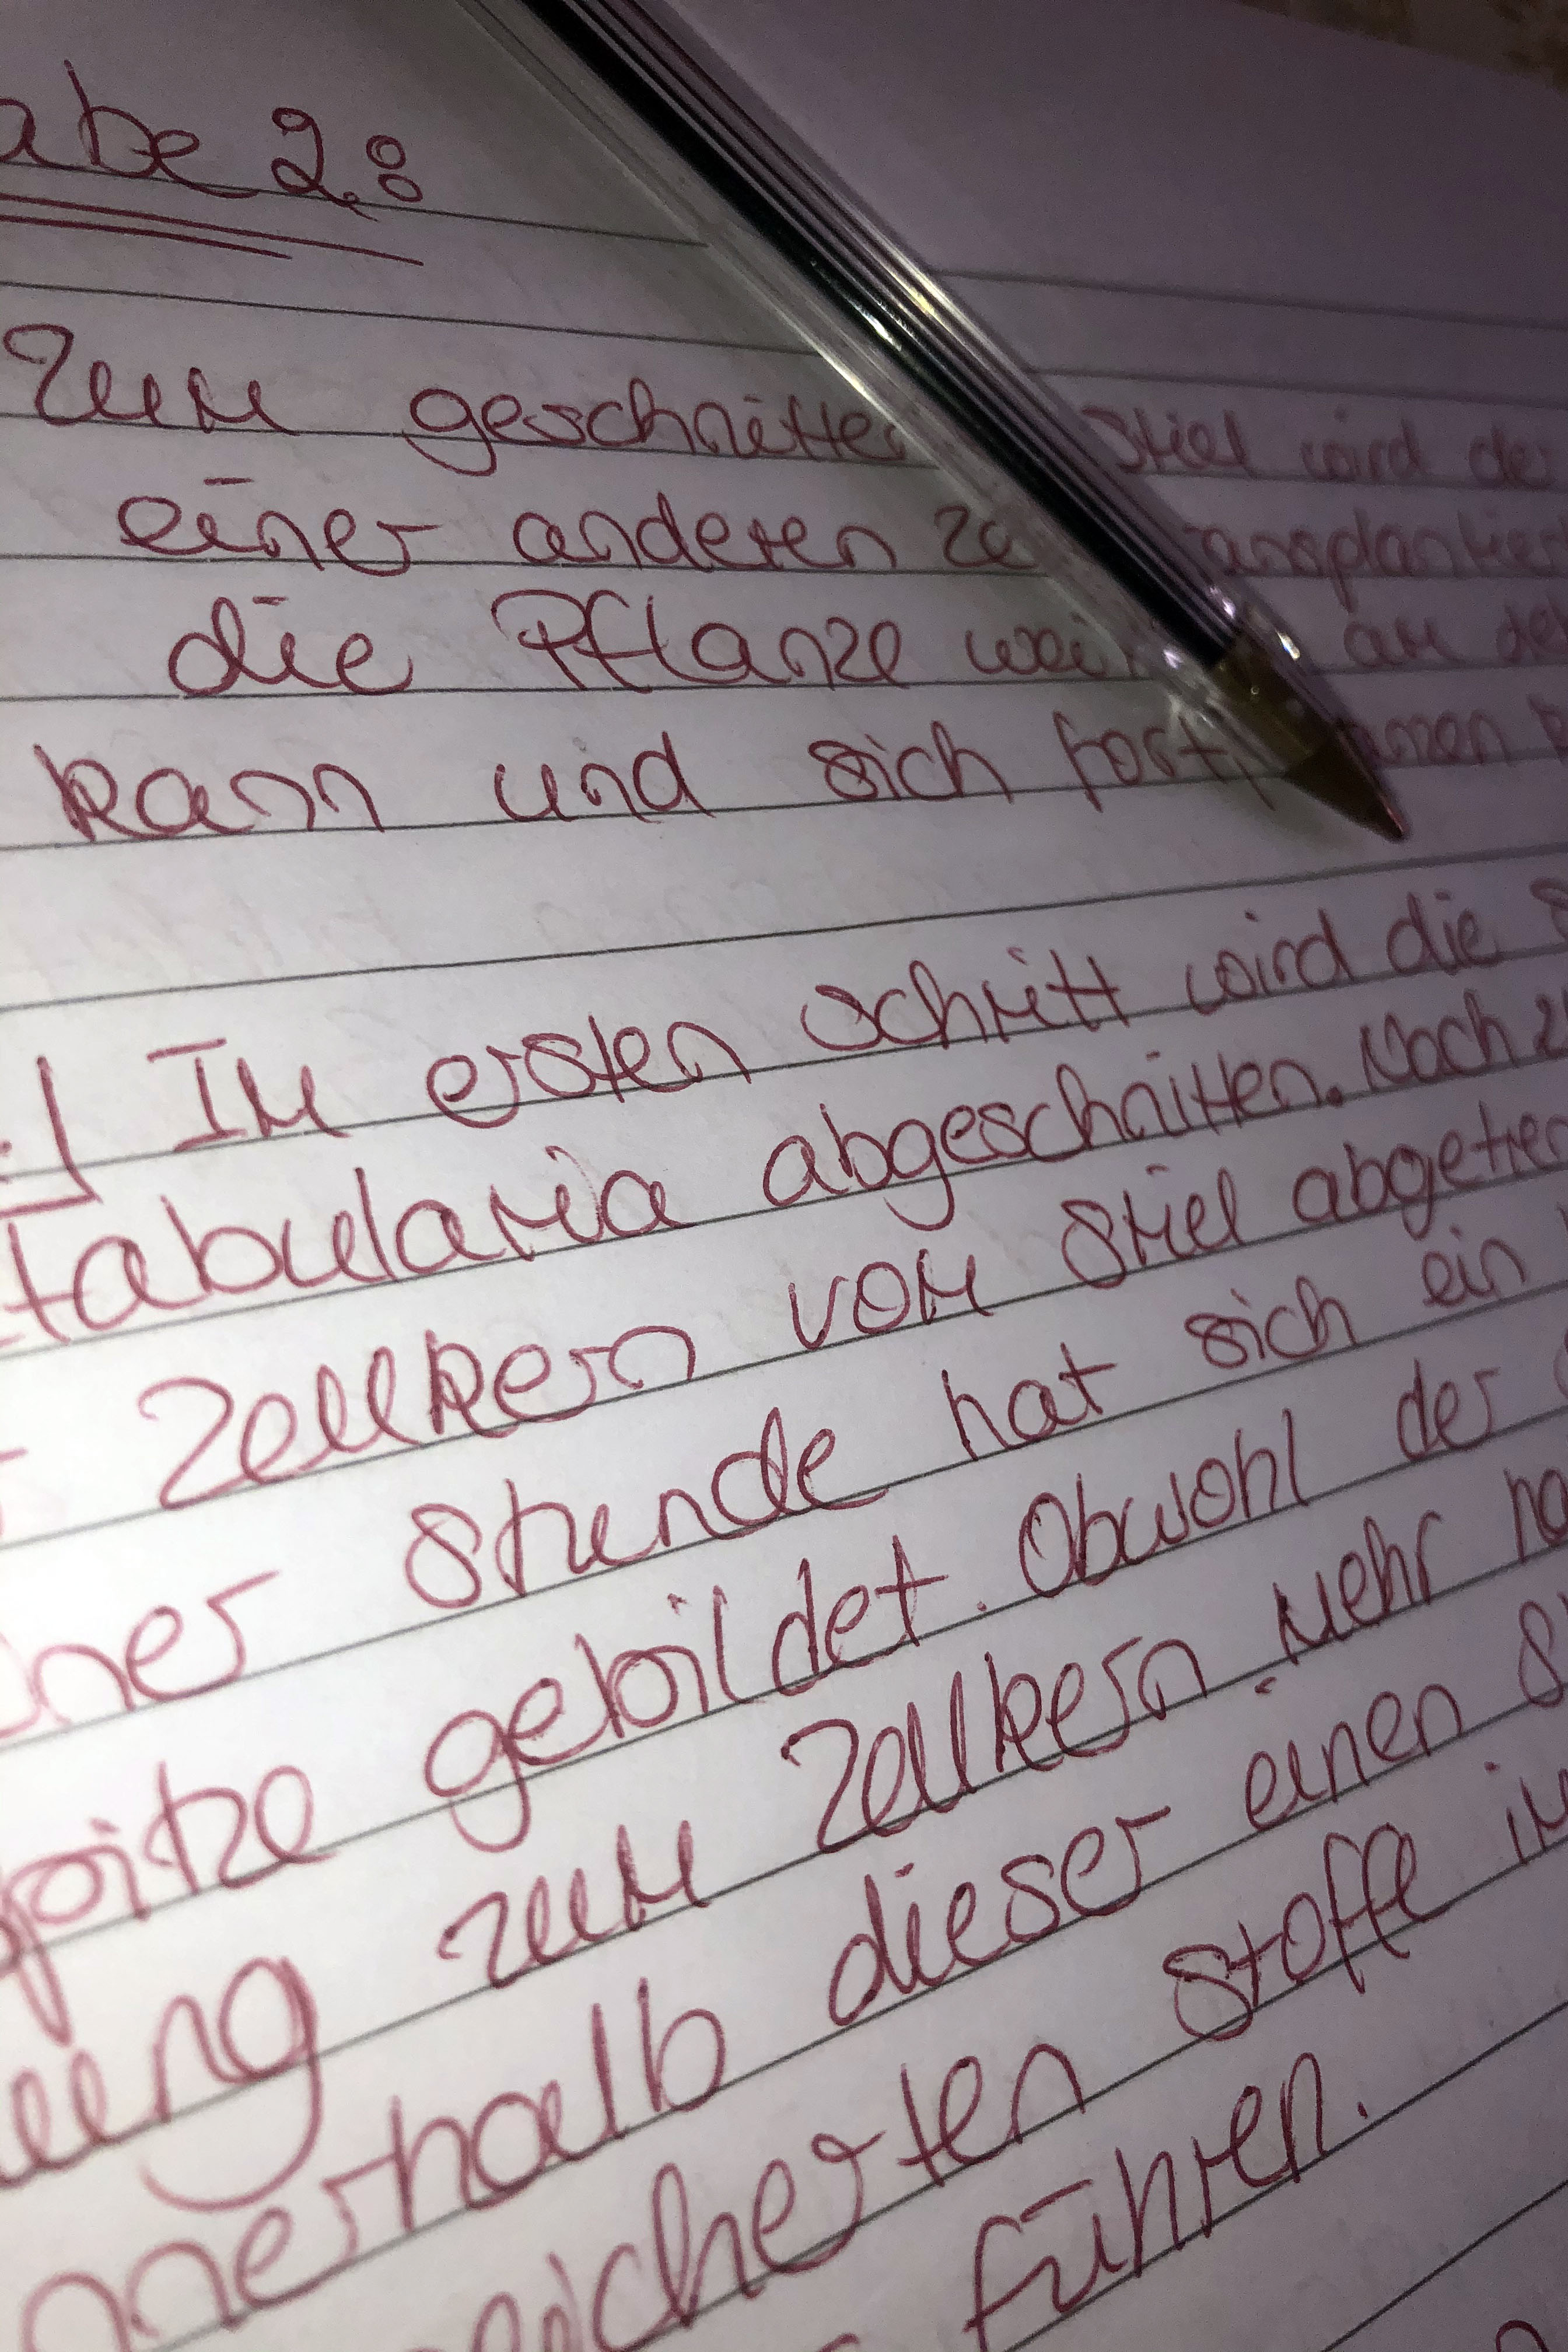 abe 2.:
Zum geschnitte Stiel wird de
einer anderen Ze ansplantier
die Pflanze wei am de
kann und sich fort anzen k
Im ersten Schritt wird die S
tabularia abgeschnitten. Nach z
Zellkern vom Stiel abgetre
iner Stunde hat sich ein
pitze gebildet. Obwohl der
ung zum Zellkern mehr ha
nnerhalb dieser einen S
eicherten Stoffe im
führen.